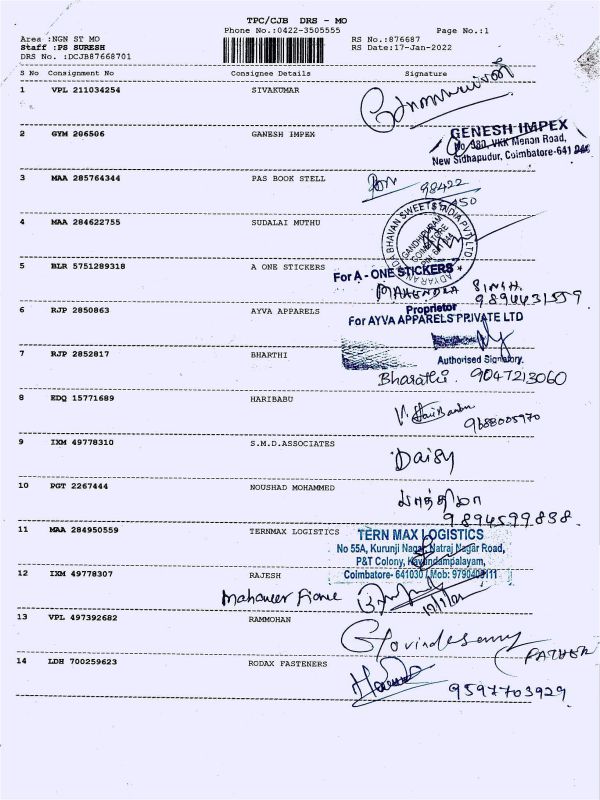 TPC/CJB DRS - MO
Phone No.:0422-3505555 Page No.:1
Area :NGN ST MO RS No.:876687
Staff :PS SURESH RS Date:17-Jan-2022
DRS No. :DCJB87668701
S No Consignment No Consignee Details Signature
1 VPL 211034254 SIVAKUMAR
2 GYM 206506 GANESH IMPEX
GENESH IMPEX
No 380, VKK Menon Road,
New Sidhapudur, Coimbatore-641
3 MAA 285764344 PAS BOOK STELL
98422
4 MAA 284622755 SUDALAI MUTHU
ADYAR ANANDA BHAVAN SWEETS INDIA PVT LTD
GANDHIPURAM
COIMBATORE
5 BLR 5751289318 A ONE STICKERS
For A - ONE STICKERS
MAHENDRA SINGH
9894431559.
Proprietor
6 RJP 2850863 AYVA APPARELS
For AYVA APPARELS PRIVATE LTD
Authorised Signatory.
7 RJP 2852817 BHARTHI
Bharathi. 9047213060
8 EDQ 15771689 HARIBABU
9688005970
9 IXM 49778310 S.M.D.ASSOCIATES
Daisy
10 PGT 2267444 NOUSHAD MOHAMMED
9894599838.
11 MAA 284950559 TERNMAX LOGISTICS
TERN MAX LOGISTICS
No 55A, Kurunji Nagar, Natraj Nagar Road,
P&T Colony, Kavundampalayam,
Coimbatore- 641030 / Mob:
12 IXM 49778307 RAJESH
13 VPL 497392682 RAMMOHAN
Govindasamy
(FATHER
14 LDH 700259623 RODAX FASTENERS
9597703929